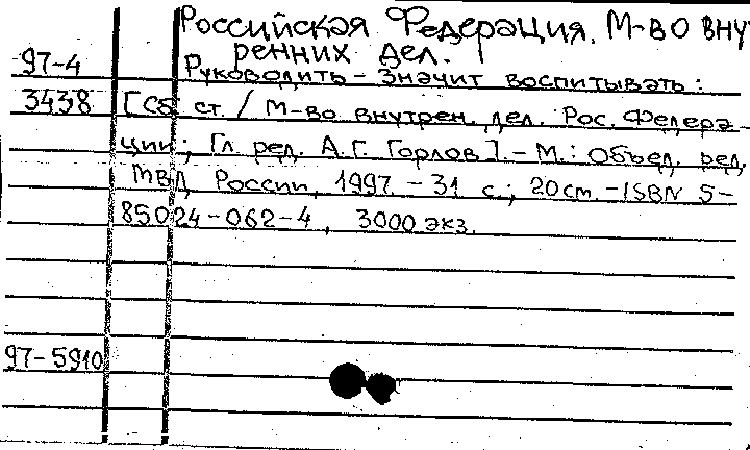 Российская Федерация. М-во вну
ренних дел.
97-4 Руководить – значит воспитывать :
3438 [Сб. ст. / М-во внутрен. дел. Рос. Федера-
ции ; Гл. ред. А.Г. Горлов]. – М. : Объед. ред.
МВД России, 1997. – 31 с. ; 20 см. – ISBN 5-
85024-062-4, 3000 экз.
97-5910